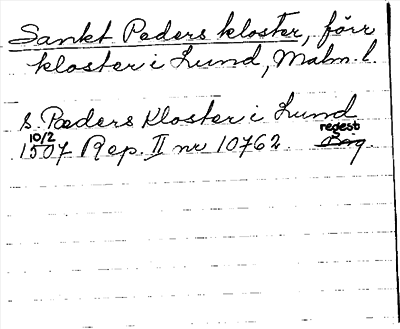 Sankt Peders kloster, förr
kloster i Lund, Malm. l.
S. Pæders Kloster i Lund
10/2 regest
1507 Rep. II nr 10762. Brig.